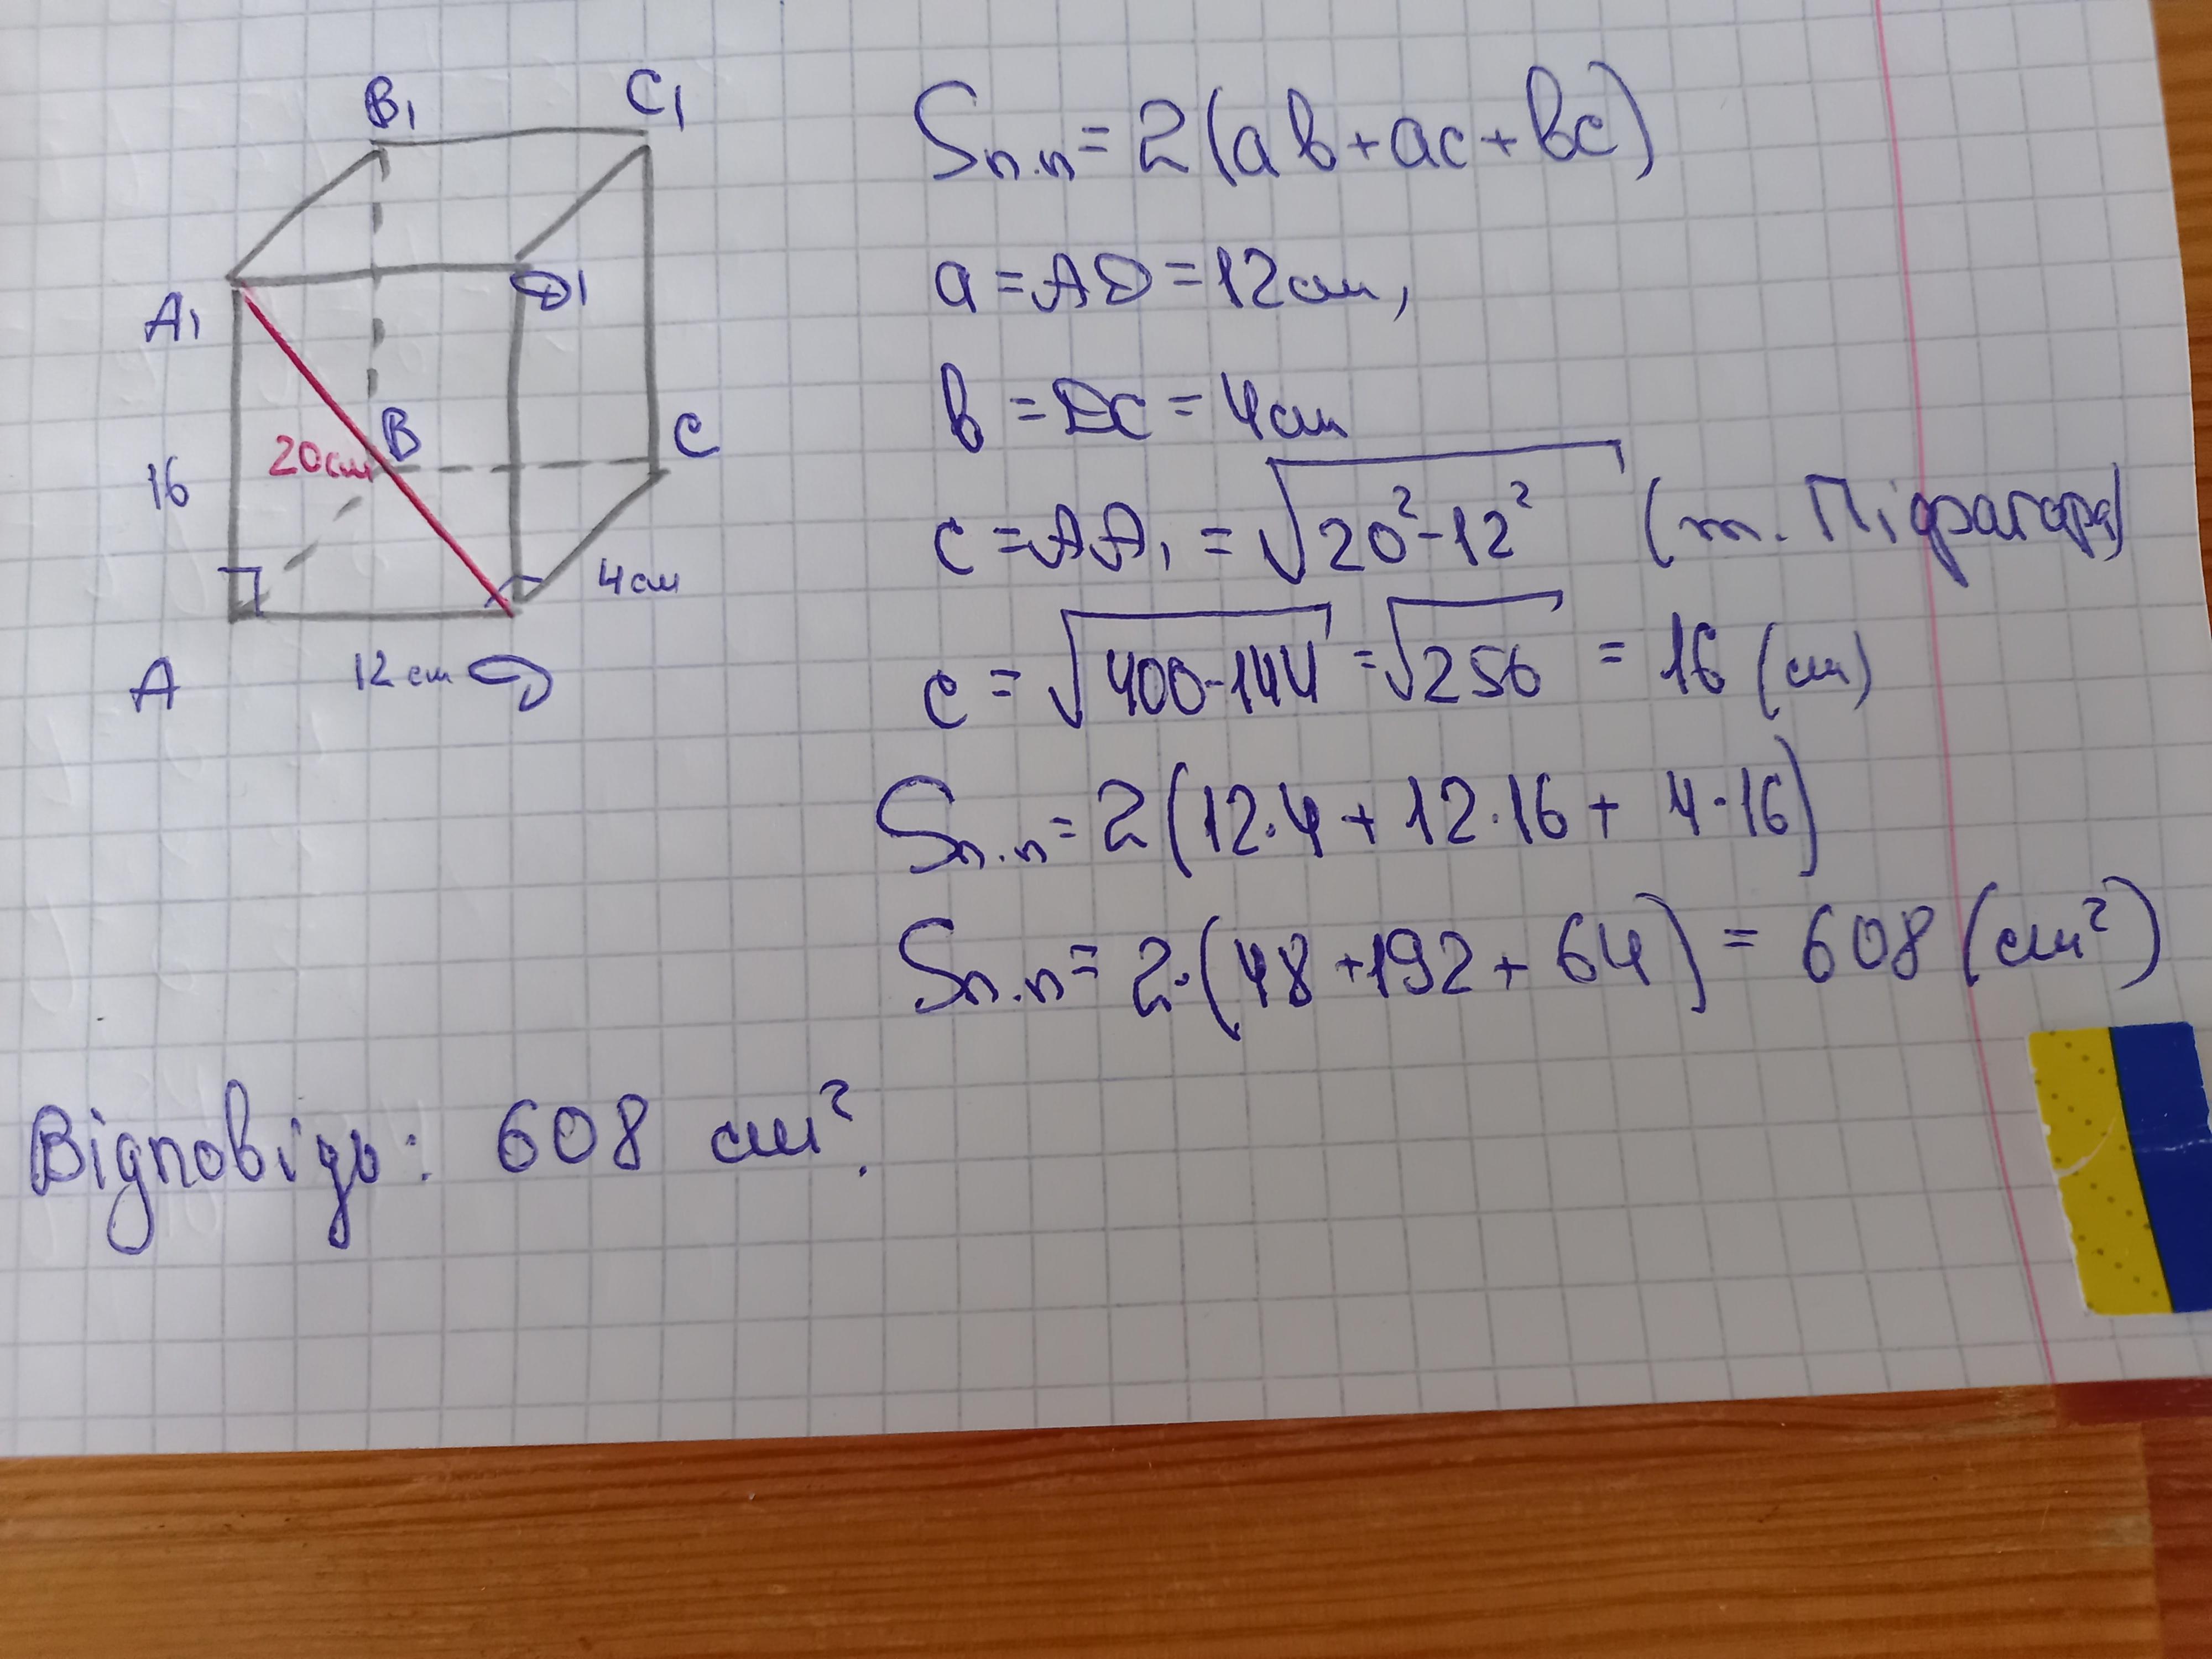 B₁ C₁
A₁ D₁
20см B C
16
4см
A 12 см D
Sп.п = 2(ab+ac+bc)
a = AD = 12см,
b = DC = 4см
c = AA₁ = √20²-12² (т. Піфагора)
c = √400-144 = √256 = 16 (см)
Sп.п = 2(12·4 + 12·16 + 4·16)
Sп.п = 2·(48+192+64) = 608 (см²)
Відповідь: 608 см².